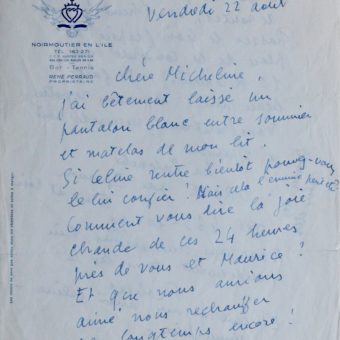 Vendredi 22 août
NOIRMOUTIER EN L'ILE
TEL. 162-271
Bar - Tennis
RENÉ PERRAUD
PROPRIÉTAIRE
chère Micheline,
j'ai bêtement laissé un
pantalon blanc entre sommier
et matelas de mon lit.
Si Celme rentre bientôt pouvez-vous
le lui confier ? Mais cela l'ennuie peut-être ?
Comment vous dire la joie
chaude de ces 24 heures
près de vous et Maurice ?
Et que nous aurions
aimé nous rechauffer
longtemps encore !